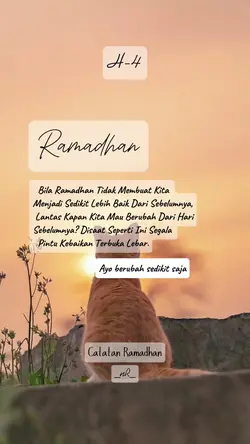 H-4
Ramadhan
Bila Ramadhan Tidak Membuat Kita
Menjadi Sedikit Lebih Baik Dari Sebelumnya,
Lantas Kapan Kita Mau Berubah Dari Hari
Sebelumnya? Disaat Seperti Ini Segala
Pintu Kebaikan Terbuka Lebar.
Ayo berubah sedikit saja
Catatan Ramadhan
_nR_